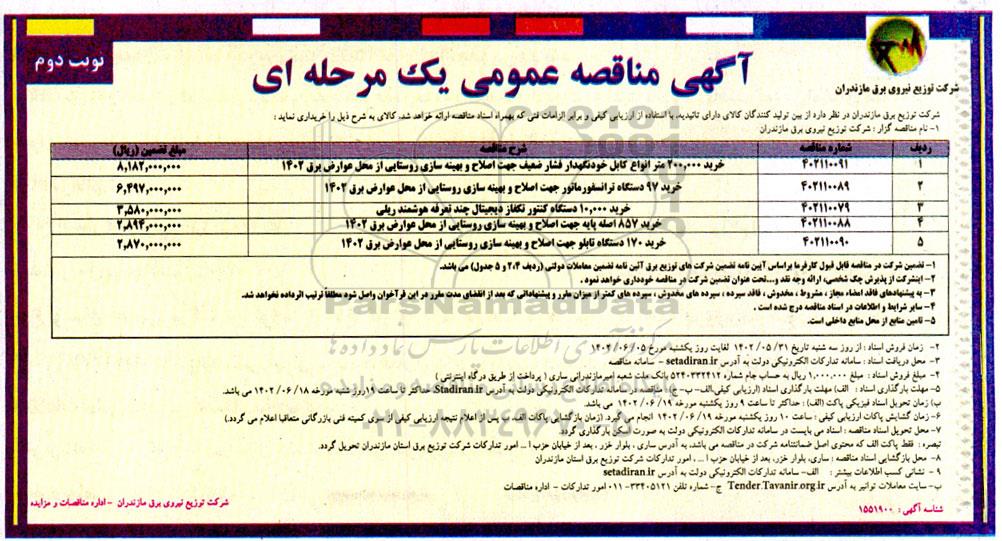 نوبت دوم
آگهی مناقصه عمومی یک مرحله ای
شرکت توزیع نیروی برق مازندران
شرکت توزیع برق مازندران در نظر دارد از بین تولید کنندگان کالای دارای تائیدیه، با استفاده از ارزیابی کیفی و برابر الزامات فنی که بهمراه اسناد مناقصه ارائه خواهد شد، کالای به شرح ذیل را خریداری نماید :
۱- نام مناقصه گزار : شرکت توزیع نیروی برق مازندران
ردیف شماره مناقصه شرح مناقصه مبلغ تضمین (ریال)
۱ ۴۰۲۱۱۰۰۹۱ خرید ۲۰۰,۰۰۰ متر انواع کابل خودنگهدار فشار ضعیف جهت اصلاح و بهینه سازی روستایی از محل عوارض برق ۱۴۰۲ ۸,۱۸۲,۰۰۰,۰۰۰
۲ ۴۰۲۱۱۰۰۸۹ خرید ۹۷ دستگاه ترانسفورماتور جهت اصلاح و بهینه سازی روستایی از محل عوارض برق ۱۴۰۲ ۶,۴۹۷,۰۰۰,۰۰۰
۳ ۴۰۲۱۱۰۰۷۹ خرید ۱۰,۰۰۰ دستگاه کنتور تکفاز دیجیتال چند تعرفه هوشمند ریلی ۳,۵۸۰,۰۰۰,۰۰۰
۴ ۴۰۲۱۱۰۰۸۸ خرید ۸۵۷ اصله پایه جهت اصلاح و بهینه سازی روستایی از محل عوارض برق ۱۴۰۲ ۲,۸۹۴,۰۰۰,۰۰۰
۵ ۴۰۲۱۱۰۰۹۰ خرید ۱۷۰ دستگاه تابلو جهت اصلاح و بهینه سازی روستایی از محل عوارض برق ۱۴۰۲ ۲,۸۷۰,۰۰۰,۰۰۰
۱- تضمین شرکت در مناقصه قابل قبول کارفرما براساس آیین نامه تضمین شرکت های توزیع برق آئین نامه تضمین معاملات دولتی (ردیف ۲،۴ و ۵ جدول) می باشد.
۲- اینشرکت از پذیرش چک شخصی، ارائه وجه نقد و...تحت عنوان تضمین شرکت در مناقصه خودداری خواهد نمود .
۳- به پیشنهادهای فاقد امضاء مجاز ، مشروط ، مخدوش ، فاقد سپرده ، سپرده های مخدوش ، سپرده های کمتر از میزان مقرر و پیشنهاداتی که بعد از انقضای مدت مقرر در این فراخوان واصل شود مطلقا ترتیب اثرداده نخواهد شد.
۴- سایر شرایط و اطلاعات در اسناد مناقصه درج شده است .
۵- تامین منابع از محل منابع داخلی است.
۲- زمان فروش اسناد : از روز سه شنبه تاریخ ۱۴۰۲/۰۵/۳۱ لغایت روز یکشنبه مورخ ۱۴۰۲/۰۶/۰۵
۳- محل دریافت اسناد : سامانه تدارکات الکترونیکی دولت به آدرس setadiran.ir – سامانه مناقصه
۴- مبلغ فروش اسناد : مبلغ ۱,۰۰۰,۰۰۰ ریال به حساب جام شماره ۵۲۴۰۳۳۲۴۱۲ بانک ملت شعبه امیرمازندرانی ساری ( پرداخت از طریق درگاه اینترنتی )
۵- مهلت بارگذاری اسناد : الف) مهلت بارگذاری اسناد (ارزیابی کیفی،الف- ب – ج) مناقصه در سامانه تدارکات الکترونیکی دولت به آدرس Stadiran.ir حداکثر تا ساعت ۱۹ روز شنبه مورخه ۱۴۰۲/۰۶/۱۸ می باشد.
ب) زمان تحویل اسناد فیزیکی پاکت (الف) : حداکثر تا ساعت ۹ روز یکشنبه مورخه ۱۴۰۲/۰۶/۱۹ می باشد
۶- زمان گشایش پاکات ارزیابی کیفی : ساعت ۱۰ روز یکشنبه مورخه ۱۴۰۲/۰۶/۱۹ انجام می گیرد. (زمان بازگشایی پاکات الف، ب، ج پس از اعلام نتیجه ارزیابی کیفی از سوی کمیته فنی بازرگانی متعاقبا اعلام می گردد.)
۷- محل تحویل اسناد مناقصه : اسناد می بایست در سامانه تدارکات الکترونیکی دولت به صورت اسکن بارگذاری گردد.
تبصره: فقط پاکت الف که محتوی اصل ضمانتنامه شرکت در مناقصه می باشد، به آدرس ساری ، بلوار خزر ، بعد از خیابان حزب ا... ، امور تدارکات شرکت توزیع برق استان مازندران تحویل گردد.
۸- محل بازگشایی اسناد مناقصه : ساری، بلوار خزر، بعد از خیابان حزب ا... ، امور تدارکات شرکت توزیع برق استان مازندران
۹ - نشانی کسب اطلاعات بیشتر : الف- سامانه تدارکات الکترونیکی دولت به آدرس setadiran.ir
ب- سایت معاملات توانیر به آدرس Tender.Tavanir.org.ir ج- شماره تلفن ۳۳۴۰۵۱۲۱-۰۱۱ امور تدارکات / اداره مناقصات
شناسه آگهی : ۱۵۵۱۹۰۰
شرکت توزیع نیروی برق مازندران - اداره مناقصات و مزایده
ParsNamadData
۰۲۱-۸۸۳۴۹۶۷۰-۵